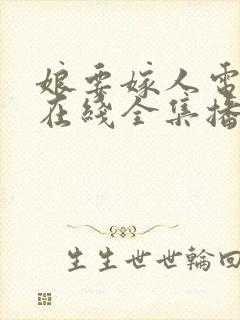 娘要嫁人電
在綫全集播
生生世世輪回